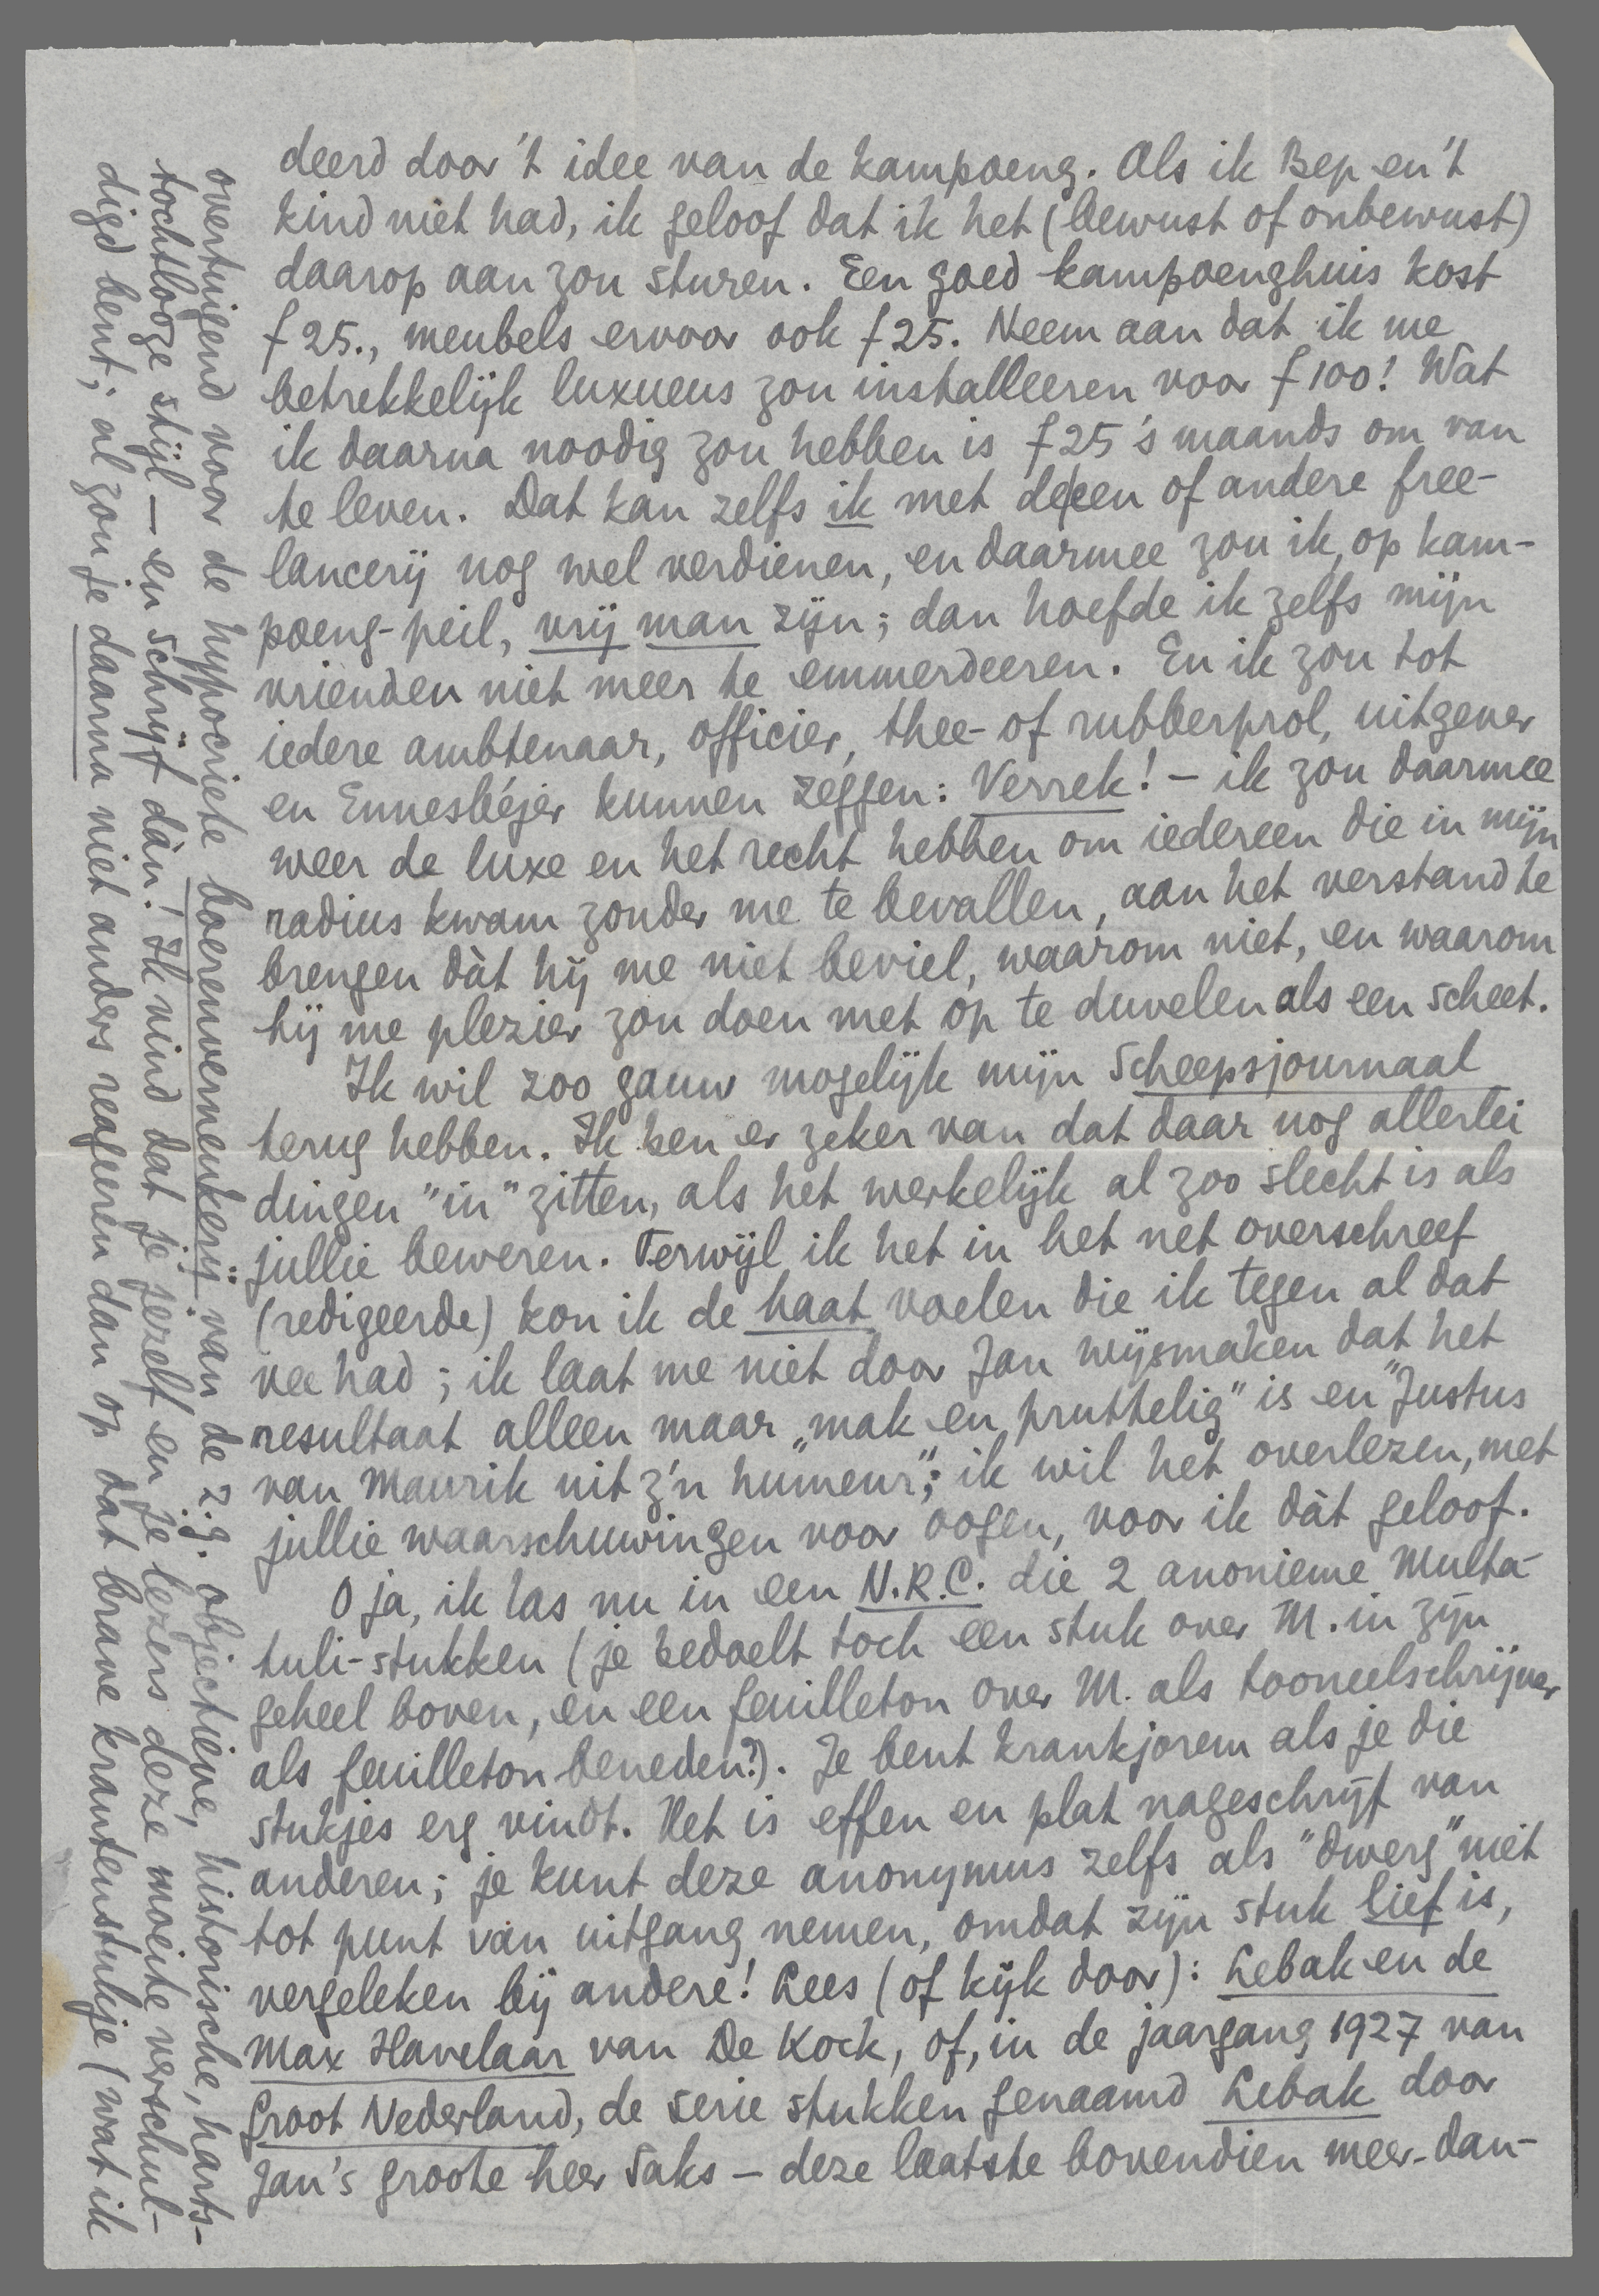 deerd door 't idee van de kampoeng. Als ik Bep en 't
kind niet had, ik geloof dat ik het (bewust of onbewust)
daarop aan zou sturen. Een goed kampoenghuis kost
f 25., meubels ervoor ook f 25. Neem aan dat ik me
betrekkelijk luxueus zou installeeren voor f 100! Wat
ik daarna noodig zou hebben is f 25 's maands om van
te leven. Dat kan zelfs ik met deeen of andere free-
lancerij nog wel verdienen, en daarmee zou ik, op kam-
poeng-peil, vrij man zijn; dan hoefde ik zelfs mijn
vrienden niet meer te emmerdeeren. En ik zou tot
iedere ambtenaar, officier, thee- of rubberprol, uitgever
en Ennesbéjer kunnen zeggen: Verrek! — ik zou daarmee
weer de luxe en het recht hebben om iedereen die in mijn
radius kwam zonder me te bevallen, aan het verstand te
brengen dàt hij me niet beviel, waarom niet, en waarom
hij me plezier zou doen met op te duvelen als een scheet.
Ik wil zoo gauw mogelijk mijn Scheepsjournaal
terug hebben. Ik ben er zeker van dat daar nog allerlei
dingen "in" zitten, als het werkelijk al zoo slecht is als
jullie beweren. Terwijl ik het in het net overschreef
(redigeerde) kon ik de haat voelen die ik tegen al dat
vee had; ik laat me niet door Jan wijsmaken dat het
resultaat alleen maar „mak en pruttelig" is en "Justus
van Maurik uit z'n humeur"; ik wil het overlezen, met
jullie waarschuwingen voor oogen, voor ik dàt geloof.
O ja, ik las nu in een N.R.C. die 2 anonieme Multa-
tuli-stukken (je bedoelt toch een stuk over M. in zijn
geheel boven, en een feuilleton over M. als tooneelschrijver
als feuilleton beneden?). Je bent krankjorem als je die
stukjes erg vindt. Het is effen en plat nageschrijf van
anderen; je kunt deze anonymus zelfs als "dwerg" niet
tot punt van uitgang nemen, omdat zijn stuk lief is,
vergeleken bij andere! Lees (of kijk door): Lebak en de
Max Havelaar van De Kock, of, in de jaargang 1927 van
Groot Nederland, de serie stukken genaamd Lebak door
Jan's groote heer Saks — deze laatste bovendien meer-dan-
overtuigend voor de hypocriete boerenvernenkerij van de z.g. objectieve, historische, harts-
tochtlooze stijl — en schrijf dàn! Ik vind dat je jezelf en je lezers deze moeite verschul-
digd bent; al zou je daarna niet anders reageeren dan op dat brave krantenstukje (wat ik